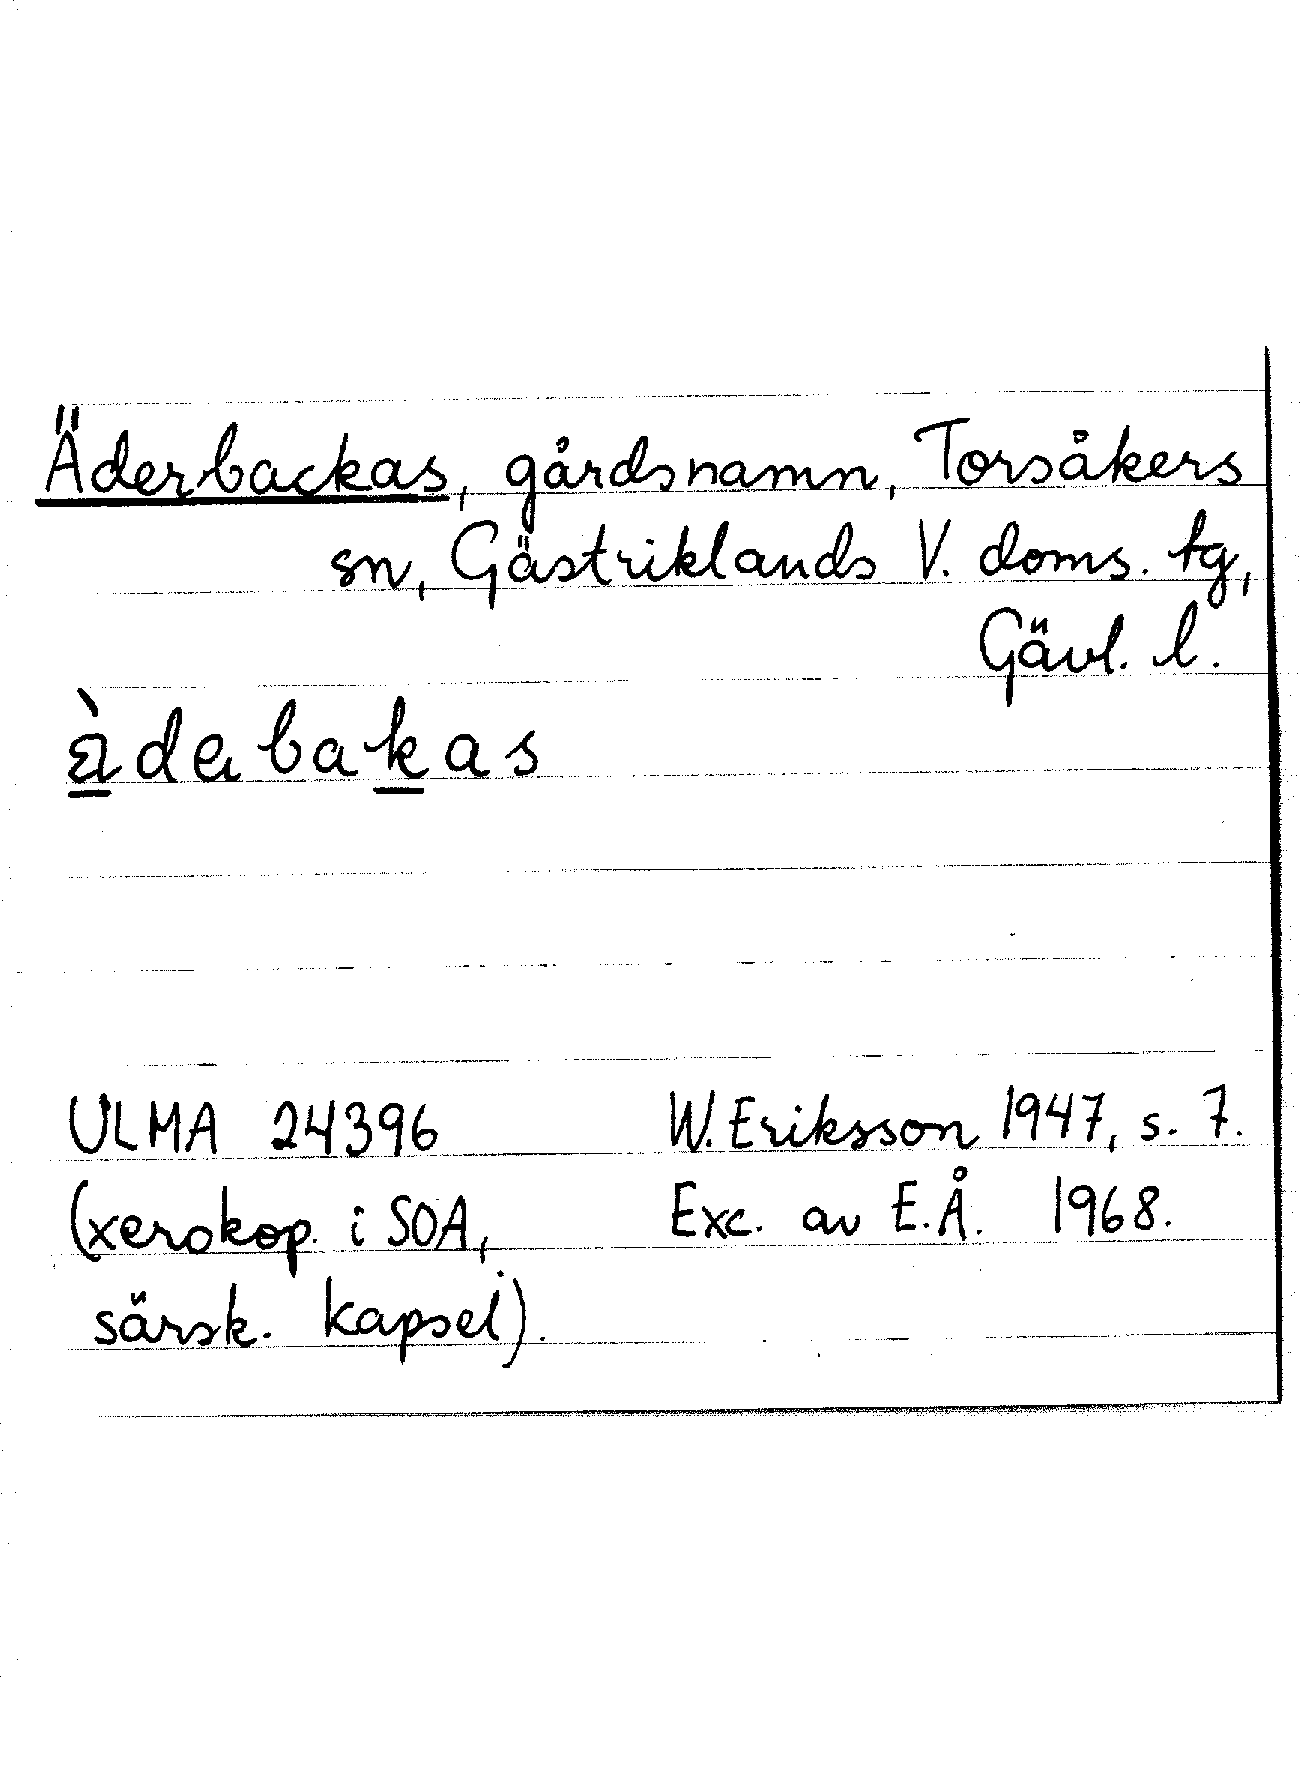 Äderbackas, gårdsnamn, Torsåkers
sn, Gästriklands V. doms. tg,
Gävl. l.
ä̀dɐbakas
ULMA 24396
(xerokop. i SOA,
särsk. kapsel).
W. Eriksson 1947, s. 7.
Exc. av E.Å. 1968.